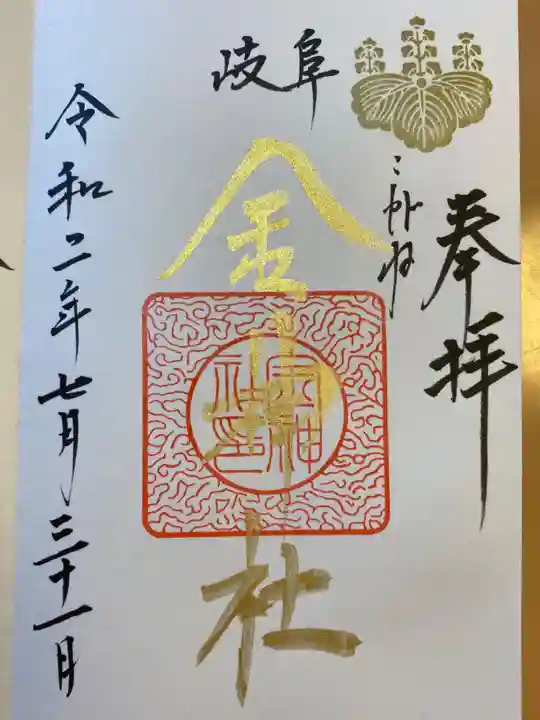 奉拝
岐阜
こがね
金神社
金神社印
令和二年七月三十一日